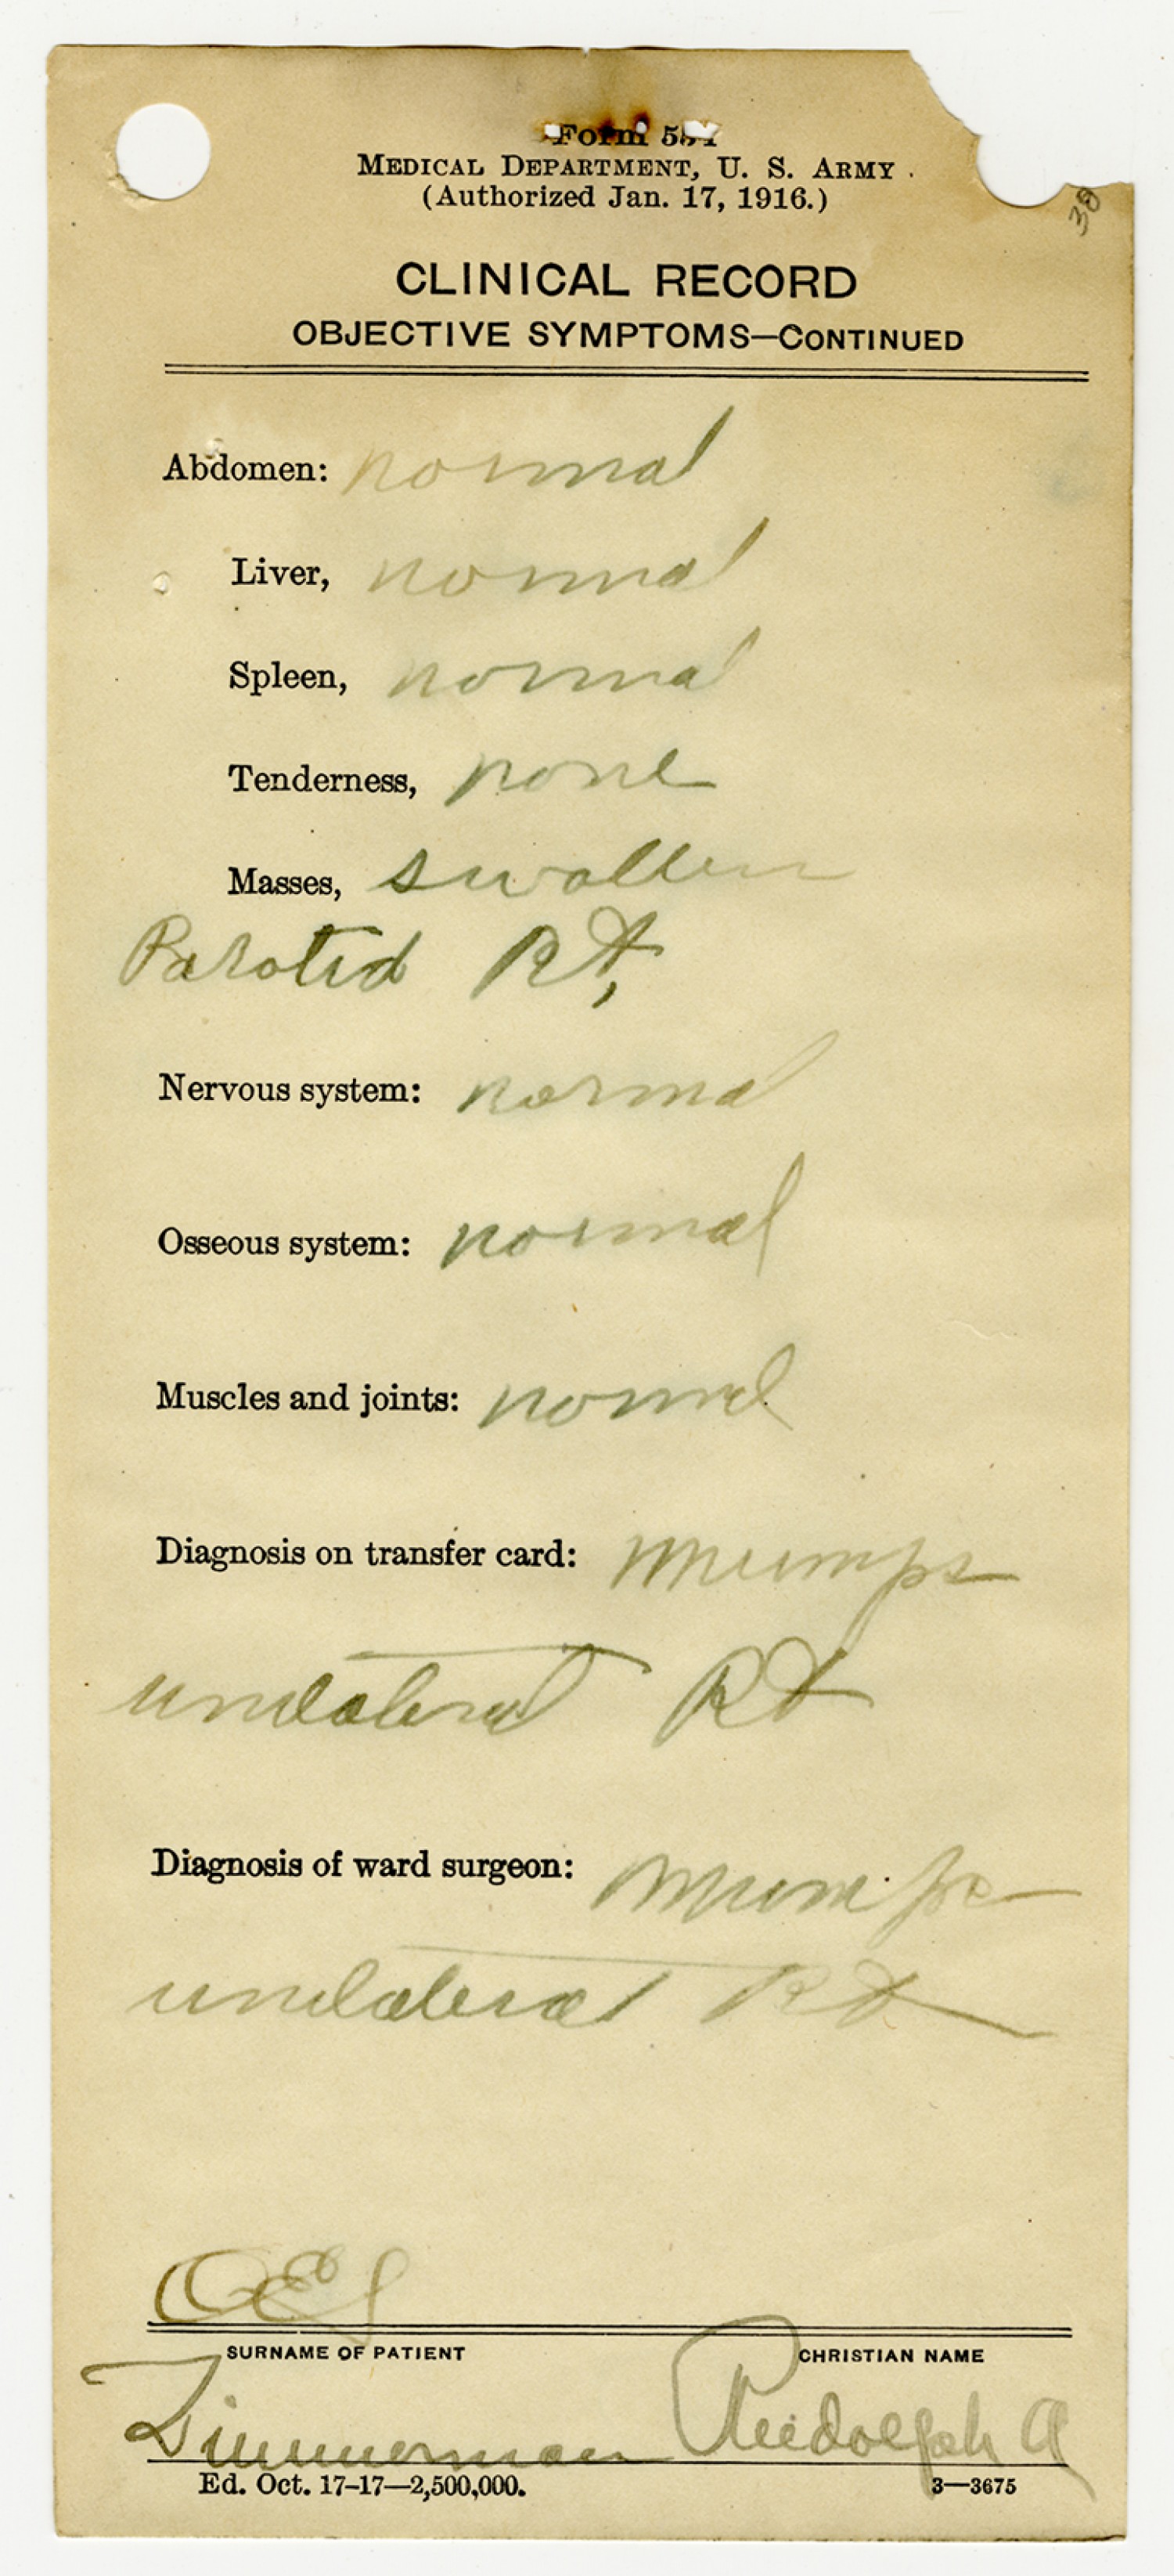 Form 55
MEDICAL DEPARTMENT, U. S. ARMY
(Authorized Jan. 17, 1916.)
38
CLINICAL RECORD
OBJECTIVE SYMPTOMS—CONTINUED
Abdomen: normal
Liver, normal
Spleen, normal
Tenderness, none
Masses, swollen
Parotid Rt,
Nervous system: normal
Osseous system: normal
Muscles and joints: normal
Diagnosis on transfer card: Mumps
unilateral Rt
Diagnosis of ward surgeon: Mumps
unilateral Rt
SURNAME OF PATIENT CHRISTIAN NAME
Zimmerman Rudolph A
Ed. Oct. 17-17—2,500,000. 3—3675